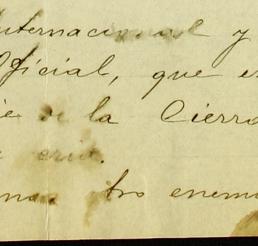 Internacional y
Oficial, que e
de la Cierra
otro enem